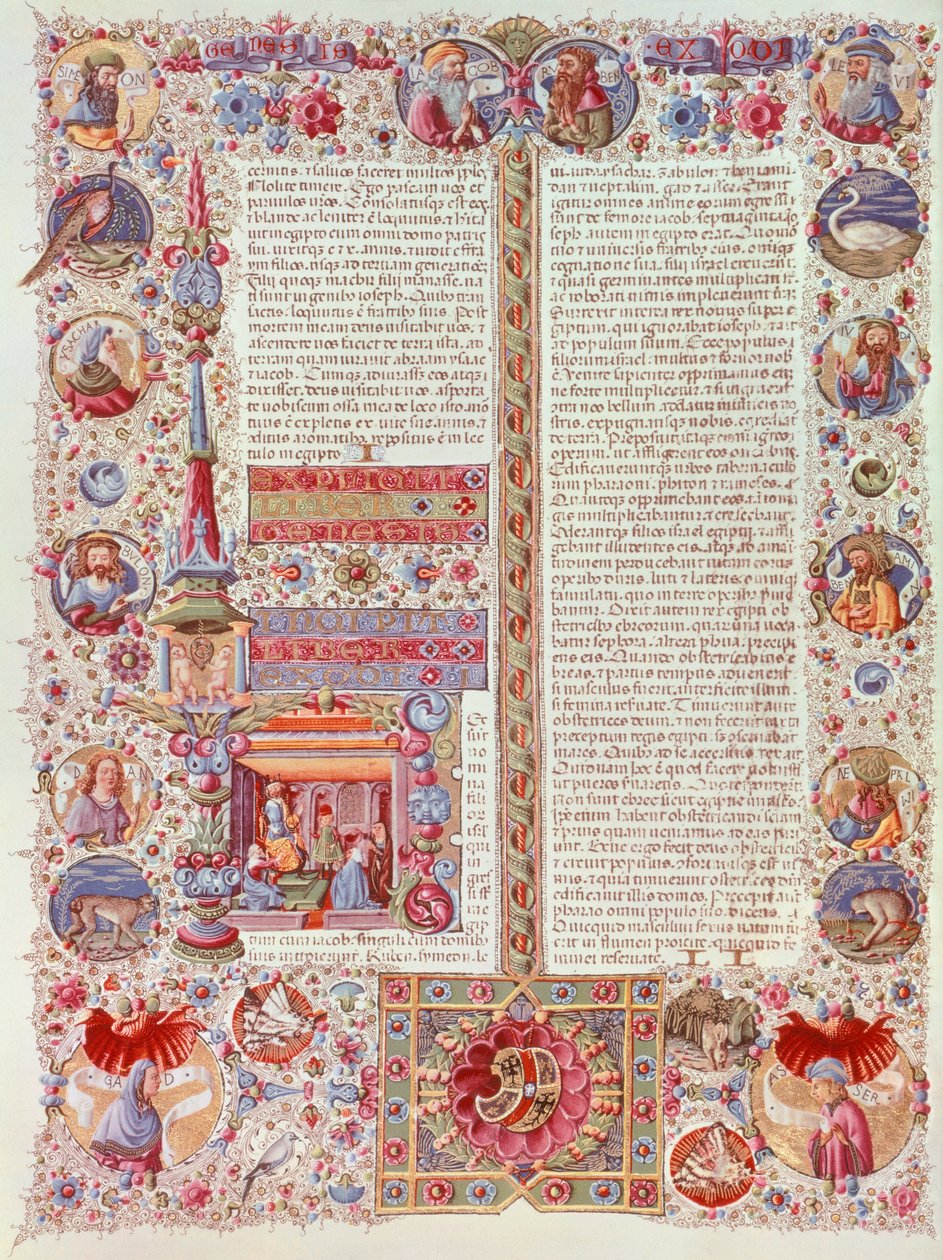 GENESIS
EXODI
SIMEON
IACOB
RUBEN
LEVI
cernitis. 7 saluos faceret multos pplos
Nolite timere. Ego pascam uos et
paruulos uros. Consolatusque est eos
7 blande ac leniter ē loquutus. 7 hita
uit in egipto cum omni domo patris
sui. uixitque c. 7 x. annis. 7 uidit effra
ym filios. usque ad terciam generationem
Filii quoque machir filii manasse. na
ti sunt in genibus ioseph. Quibus tran
sactis. loquutus ē fratribus suis. Post
mortem meam deus uisitabit uos. 7
ascendere uos faciet de terra ista. ad
terram quam iurauit abraam ysaac
7 iacob. Cumque adiurasset eos atque
dixisset. deus uisitabit uos. asporta
te uobiscum ossa mea de loco isto. mor
tuus ē expletis cx. uite sue annis. 7
conditus aromatibus repositus ē in loc
culo in egipto
EXPLICIT
LIBER
GENESIS
INCIPIT
LIBER
EXODI
sunt
no
mi
na
fili
or
isrl
qui
in
gressi
egip
tum cum iacob. singuli cum domibus
suis introierunt. Ruben. symeon. le
ui. iuda. ysachar. zabulon 7 beniami
dan 7 neptalim. gad 7 aser. Erant
igitur omnes anime eorum egressi
sunt de femore iacob septuaginta. Io
seph autem in egipto erat. Quo mor
tuo 7 uniuersis fratribus eius. omnique
cognatione sua. filii israel creuerunt
7 quasi germinantes multiplicati st
ac roborati nimis impleuerunt terram
Surrexit interea rex nouus super e
giptum. qui ignorabat ioseph. 7 ait
ad populum suum. Ecce populus
filiorum israel multus 7 fortior nobis
ē. Venite sapienter opprimamus eum
ne forte multiplicetur. 7 si ingruerit
contra nos bellum. addatur inimicis no
stris. expugnatisque nobis. egrediatur
de terra. Preposuit itaque eis magistros
operum. ut affligerent eos oneribus.
Edificaueruntque urbes tabernaculorum
pharaoni. phiton 7 rameses.
Quantoque opprimebant eos. tanto ma
gis multiplicabantur 7 crescebant.
Oderantque filios israel egiptii. 7 affli
gebant illudentes eis. atque ad amari
tudinem perducebant uitam eorum
operibus duris. luti 7 lateris. omnique
famulatu. quo in terre operibus preme
bantur. Dixit autem rex egipti ob
stetricibus ebreorum. quarum una uoca
batur sephora. altera phua. precipi
ens eis. Quando obstetricabitis e
breas. 7 partus tempus aduenerit
si masculus fuerit. interficite illum
si femina reseruate. Timuerunt autem
obstetrices deum. 7 non fecerunt iuxta
preceptum regis egipti. sed conseruabant
mares. Quibus ad se accersitis. rex ait.
Quidnam hoc ē quod facere uoluistis
ut pueros seruaretis. Que responderunt
Non sunt ebree sicut egiptie mulieres.
Ipse enim habent obstetricandi sciam
7 prius quam ueniamus ad eas pari
unt. Bene ergo fecit deus obstetricibus
7 creuit populus. 7 fortatus est ni
mis. 7 quia timuerunt obstetrices deum
edificauit illis domos. Precepit autem
pharao omni populo suo. dicens.
Quicquid masculini sexus natum fu
erit in flumen proicite. quicquid fe
minei reseruate. II
YSACHAR
IVDA
BVLON
BENIAMI
DAN
NEPTALI
GAD
ASER